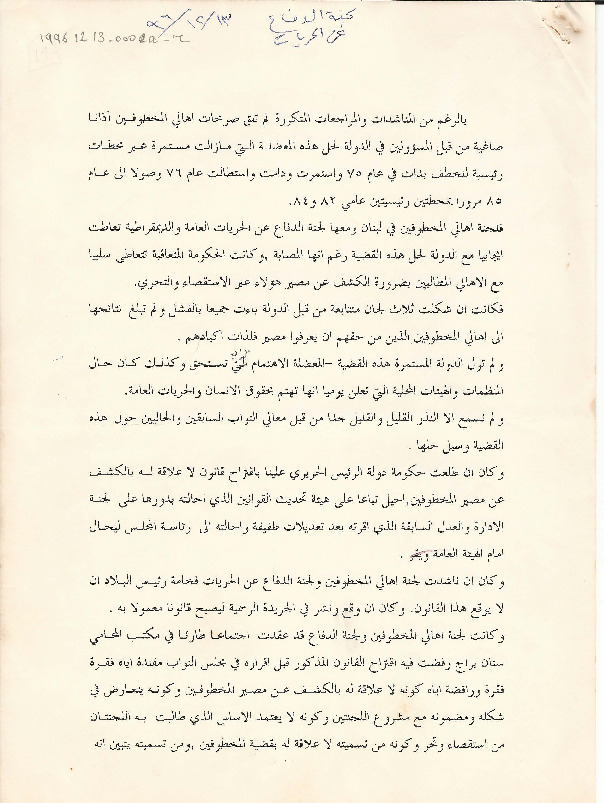 لجنة الدفاع
عن الحريات
٩٦/١٢/١٣
1996 12 13
بالرغم من المناشدات والمراجعات المتكررة لم تبق صرخات اهالي المخطوفين أذانا
صاغية من قبل المسؤولين في الدولة لحل هذه المعضلة التي مازالت مستمرة عبر محطات
رئيسية للخطف بدات في عام ٧٥ واستمرت ودامت واستطالت عام ٧٦ وصولا الى عام
٨٥ مرورا بمحطتين رئيسيتين عامي ٨٢ و٨٤.
فلجنة اهالي المخطوفين في لبنان ومعها لجنة الدفاع عن الحريات العامة والديمقراطية تعاطت
ايجابيا مع الدولة لحل هذه القضية رغم انها المصابة ,وكانت الحكومة المتعاقبة تتعاطى سلبيا
مع الاهالي المطالبين بضرورة الكشف عن مصير هؤلاء عبر الاستقصاء والتحري.
فكانت ان شكلت ثلاث لجان متتابعة من قبل الدولة باءت جميعا بالفشل و لم تبلغ نتائجها
الى اهالي المخطوفين الذين من حقهم ان يعرفوا مصير فلذات اكبادهم .
و لم تول الدولة المستمرة هذه القضية -المعضلة الاهتمام تستحق وكذلك كان حال
المنظمات والهيئات المحلية التي تعلن يوميا انها تهتم بحقوق الانسان والحريات العامة.
و لم نسمع الا النذر القليل والقليل جدا من قبل معالي النواب السابقين والحاليين حول هذه
القضية وسبل حلها .
وكان ان طلعت حكومة دولة الرئيس الحريري علينا باقتراح قانون لا علاقة له بالكشف
عن مصير المخطوفين,احيل تباعا على هيئة تحديث القوانين الذي احالته بدورها على لجنة
الادارة والعدل السابقة الذي اقرته بعد تعديلات طفيفة واحالته الى رئاسة المجلس ليحال
امام الهيئة العامة ويقر .
وكان ان ناشدت لجنة اهالي المخطوفين ولجنة الدفاع عن الحريات فخامة رئيس البلاد ان
لا يوقع هذا القانون. وكان ان وقع ونشر في الجريدة الرسمية ليصبح قانونا معمولا به .
وكانت لجنة اهالي المخطوفين ولجنة الدفاع قد عقدت اجتماعا طارئا في مكتب المحامي
سنان براج رفضت فيه اقتراح القانون المذكور قبل اقراره في مجلس النواب مفندة اياه فقرة
فقرة ورافضة اياه كونه لا علاقة له بالكشف عن مصير المخطوفين وكونه يتعارض في
شكله ومضمونه مع مشروع اللجنتين وكونه لا يعتمد الاساس الذي طالبت به اللجنتان
من استقصاء وتحر وكونه من تسميته لا علاقة له بقضية المخطوفين ,ومن تسميته يتبين انه